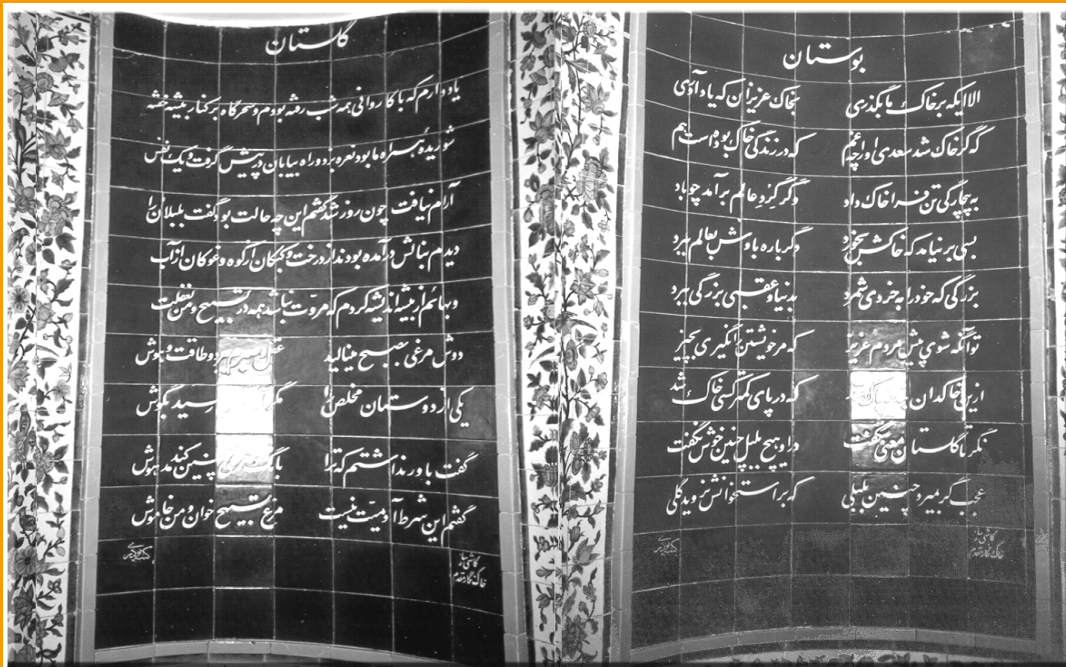 بوستان
الا ایکه بر خاک ما بگذری بخاک عزیزان که یاد آوری
که گر خاک شد سعدی او را چه غم که در زندگی خاک بوده است هم
به بیچارگی تن فرا خاک داد وگر گرد عالم برآمد چو باد
بسی برنیاید که خاکش خورد دگر باره بادش بعالم برد
بزرگی که خود را به خردی شمرد بدنیا و عقبی بزرگی ببرد
تو آنگه شوی پیش مردم عزیز که مر خویشتن را نگیری بچیز
ازین خاکدان که در پای کمتر کسی خاک شد
نگر تا گلستان معنی شکفت در او هیچ بلبل چنین خوش نگفت
عجب گر بمیرد چنین بلبلی که بر استخوانش نروید گلی
کاشی ساز
خاک نگار مقدم
گلستان
یاد دارم که با کاروانی همه شب رفته بودم و سحرگاه بر کنار بیشه خفته
شوریده‌ٔ همراه ما بود نعره بزد و راه بیابان در پیش گرفت و یک نفس
آرام نیافت چون روز شد گفتم این چه حالت بود گفت بلبلان را
دیدم بنالش درآمده بودند از درخت و کبکان از کوه و غوکان از آب
و بهائم از بیشه اندیشه کردم که مروت نباشد همه در تسبیح و من بغفلت
دوش مرغی بصبح مینالید عقل و صبرم ببرد و طاقت و هوش
یکی از دوستان مخلص را مگر رسید بگوش
گفت باور نداشتم که ترا بانگ چنین کند مدهوش
گفتم این شرط آدمیت نیست مرغ تسبیح خوان و من خاموش
کاشی ساز
خاک نگار مقدم